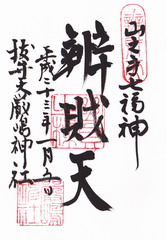 山之手七福神
辨財天
平成二十三年一月五日
抜弁天厳嶋神社